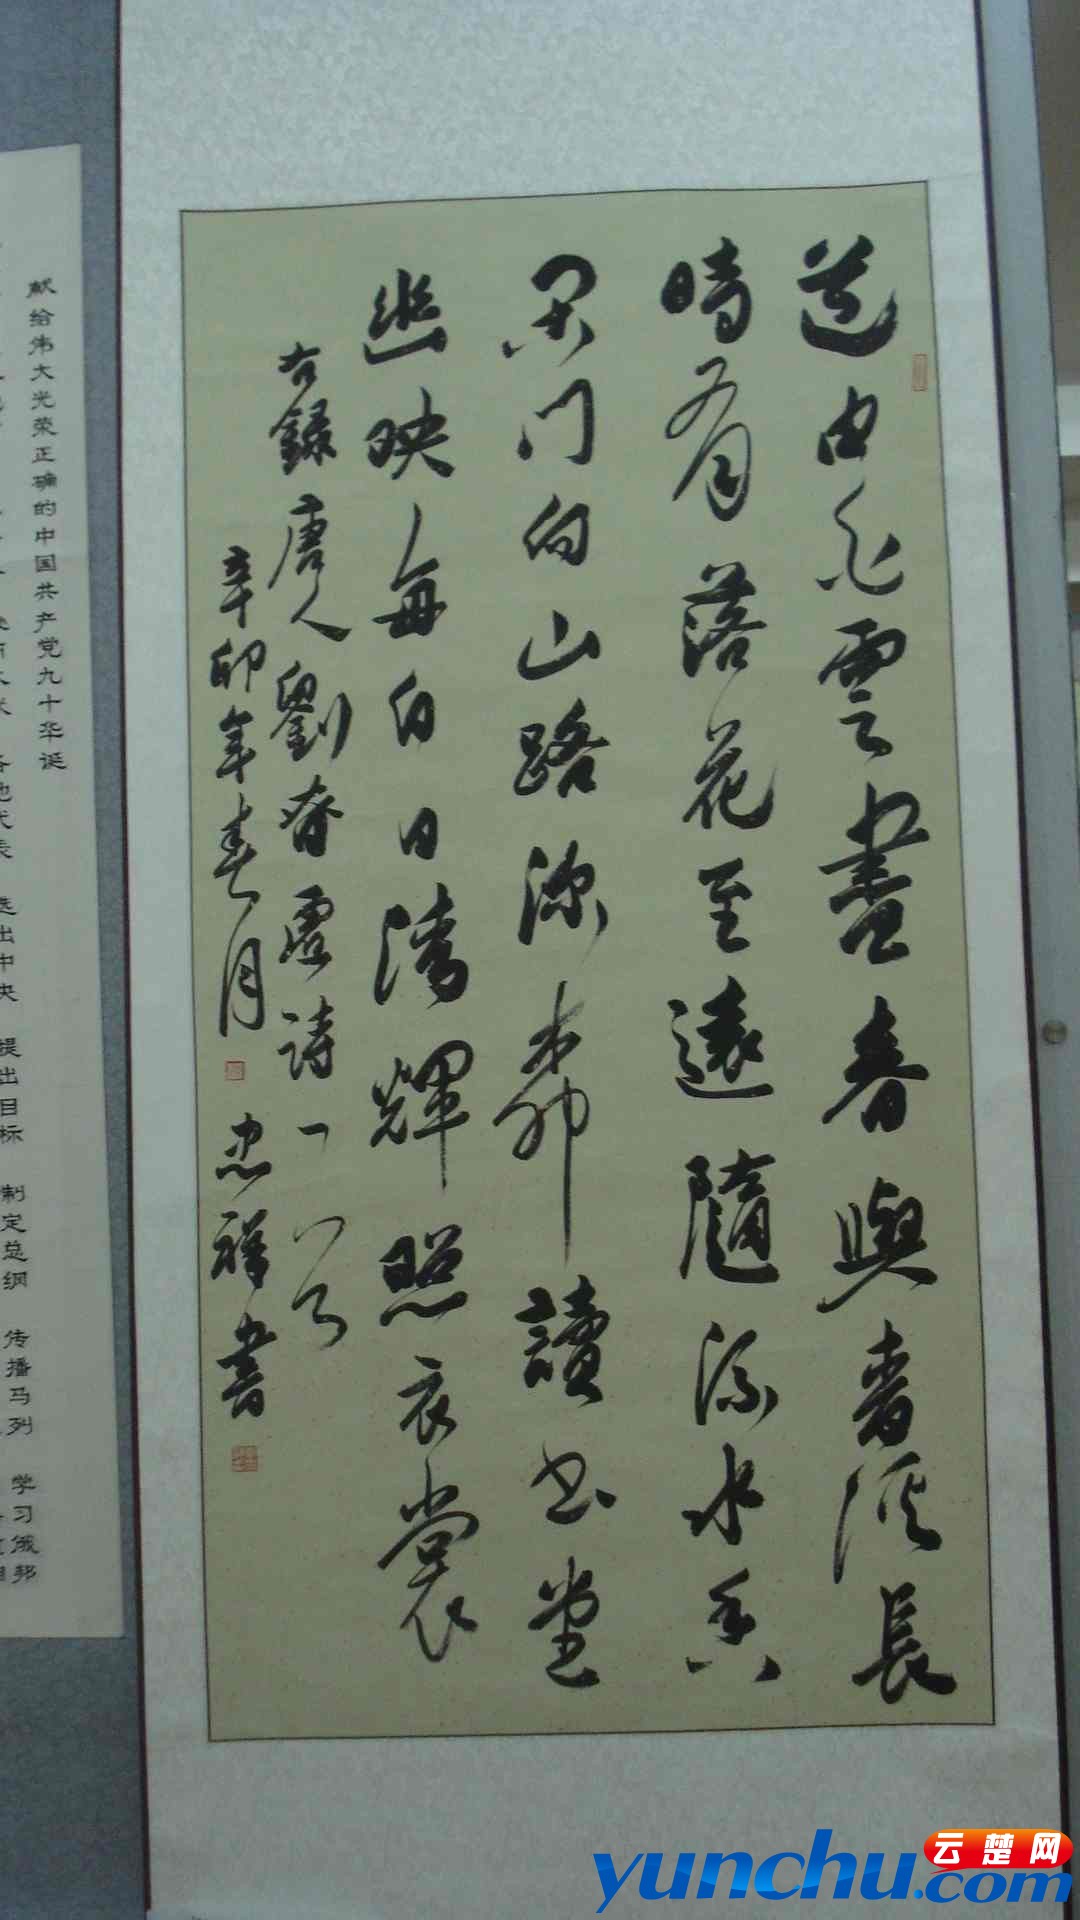 道由白雲盡春與青溪長
時有落花至遠隨流水香
閑門向山路深柳讀書堂
幽映每白日清輝照衣裳
右錄唐人劉眘虛詩一首
辛卯年春月 忠祥書
献给伟大光荣正确的中国共产党九十华诞
各地代表 选出中央 提出目标 制定总纲 传播马列 学习俄邦
云楚网
yunchu.com